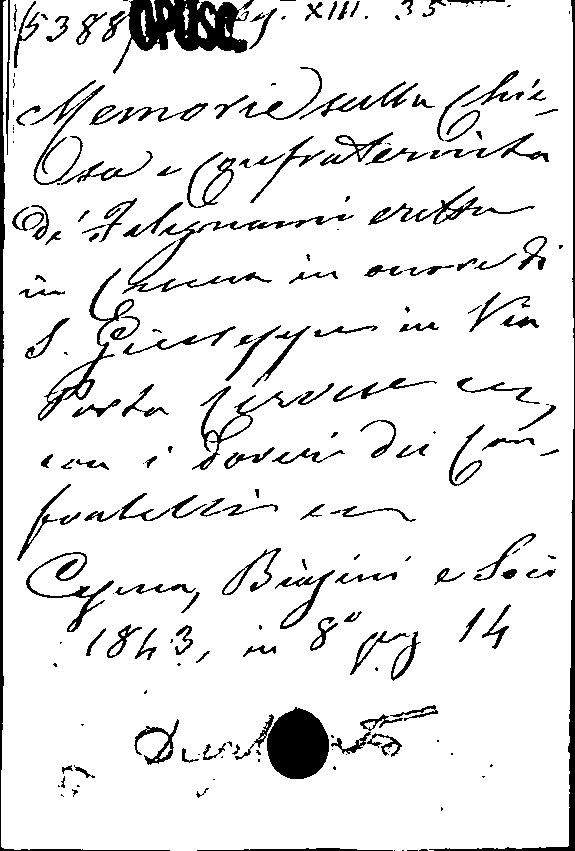 (5388) OPUSC. by. XIII. 35
Memorie sulla Chie-
sa e Confraternita
de' Falegnami eretta
in Cesena in onore di
S. Giuseppe in Via
Porta Cervese ecc,
con i Doveri dei Con-
fratelli ecc
Cesena, Biasini e Soci
1843, in 8° pag 14